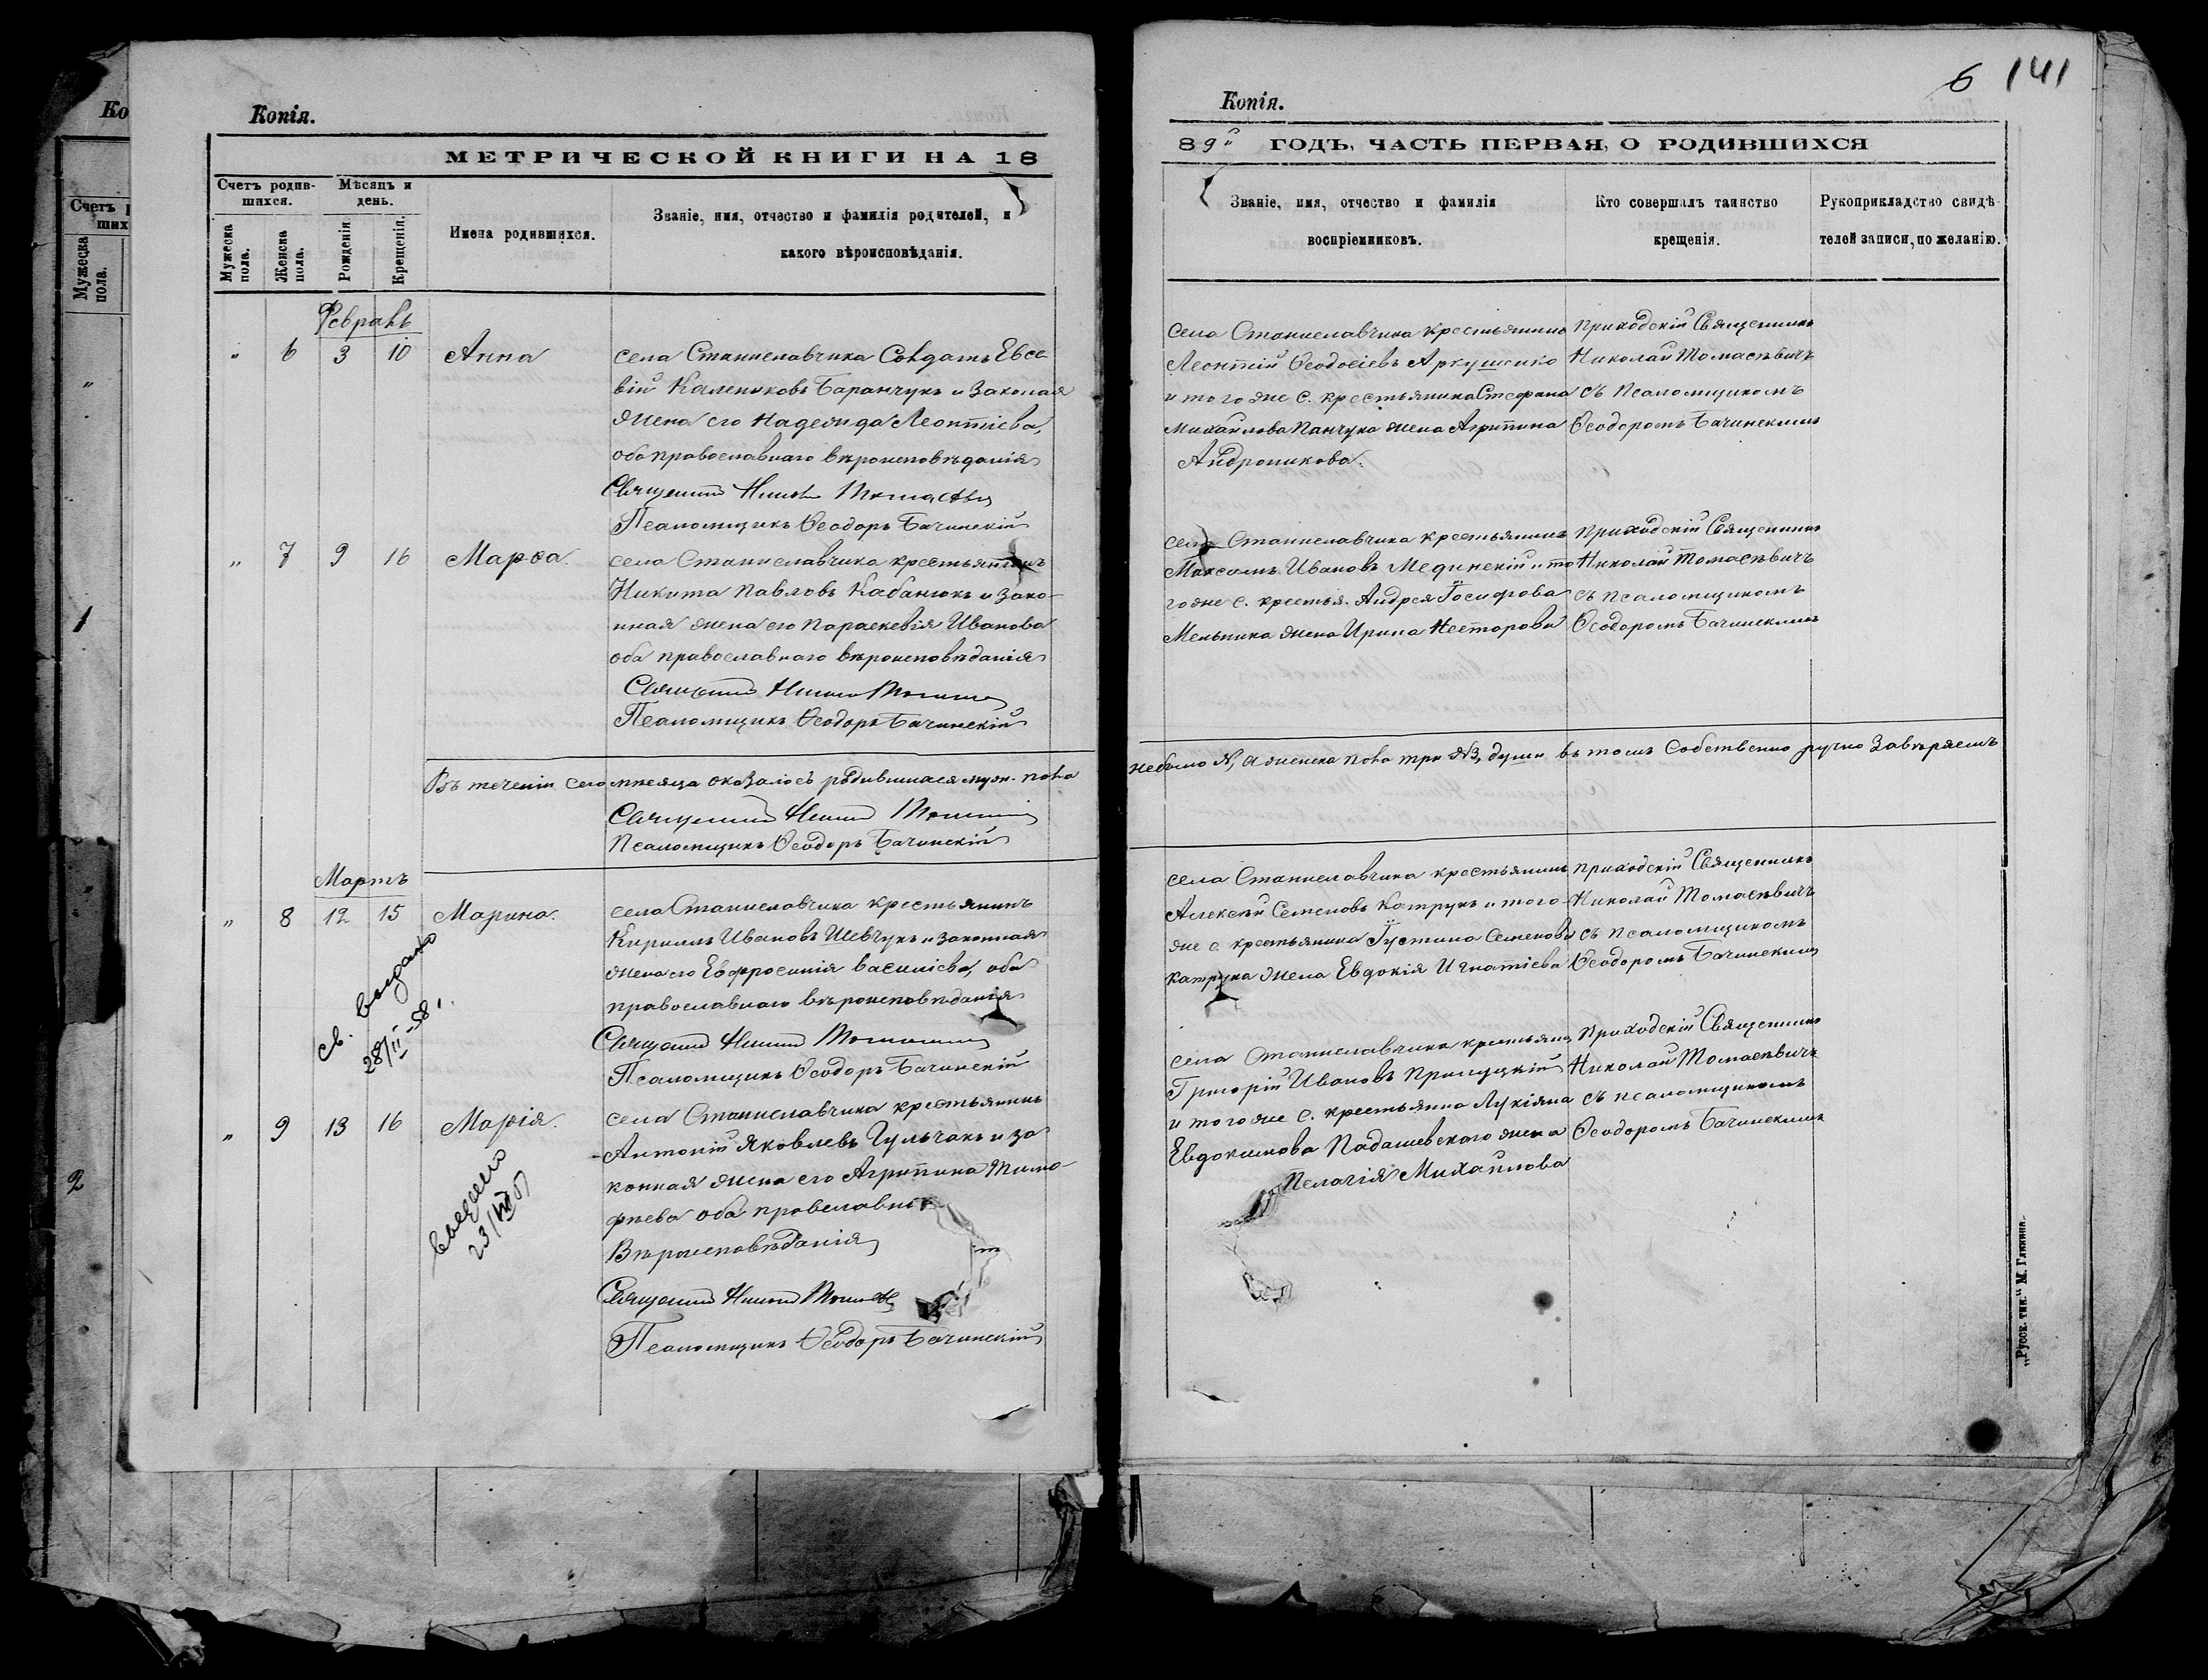 Ко
Счетъ
ших
Мужеска
пола.
"
1
2
Копія.
МЕТРИЧЕСКОЙ КНИГИ НА 18
Счетъ родив-
шихся.
Мѣсяцъ и
день.
Мужеска
пола.
Женска
пола.
Рожденія.
Крещенія.
Имена родившихся.
Званіе, имя, отчество и фамилія родителей, и
какого вѣроисповѣданія.
Февраль
" 6 3 10 Анна
села Станиславчика Солдатъ Евсе
вій Калениковъ Баранчукъ и Законая
жена его Надежда Леонтіева,
оба православнаго вѣроисповѣданія
Священникъ Николай Томасѣвичъ
Псаломщикъ Ѳеодоръ Бачинскій
" 7 9 16 Марѳа.
села Станиславчика крестьянинъ
Никита Павловъ Кабанюкъ и Зако-
нная жена его Параскевія Иванова
оба православнаго вѣроисповѣданія
Священникъ Николай
Псаломщикъ Ѳеодоръ Бачинскій
Въ теченіи сего мѣсяца оказалось родившихся муж. пола
Священникъ Николай
Псаломщикъ Ѳеодоръ Бачинскій
Мартъ
" 8 12 15 Марина.
села Станиславчика крестьянинъ
Кириллъ Ивановъ Шевчукъ и законная
жена его Евфросинія Василіева, оба
православнаго вѣроисповѣданія
Священникъ Николай
Псаломщикъ Ѳеодоръ Бачинскій
св. выдано
28/II-58 г.
" 9 13 16 Марія.
села Станиславчика крестьянинъ
Антоній Яковлевъ Гульчакъ и за
конная жена его Агрипина Тимо-
фѣева оба провславнаго
Вѣроисповѣданія
Священникъ Николай
Псаломщикъ Ѳеодоръ Бачинскій
23/VII
6 141
Копія.
89й ГОДЪ, ЧАСТЬ ПЕРВАЯ, О РОДИВШИХСЯ
Званіе, имя, отчество и фамилія
воспріемниковъ.
Кто совершалъ таинство
крещенія.
Рукоприкладство свидѣ
телей записи, по желанію.
села Станиславчика крестьянинъ
Леонтій Ѳеодосіевъ Аркушенко
и того же с. крестьянина Стефана
Михайлова Панчука жена Агрипина
Андроникова.
Приходскій Священникъ
Николай Томасѣвичъ
съ Псаломщикомъ
Ѳеодоромъ Бачинскимъ
села Станиславчика крестьянинъ
Максимъ Ивановъ Мединскій и то
гоже с. крестья. Андрея Іосифова
Мельника жена Ирина Несторова
Приходскій Священникъ
Николай Томасѣвичъ
съ псаломщикомъ
Ѳеодоромъ Бачинскимъ
небыло N, а женска пола три N3, души въ томъ Собственно ручно Завѣряемъ
села Станиславчика крестьянинъ
Алексѣй Семеновъ Катрукъ и того
же с. крестьянина Іустина Семенова
Катрука жена Евдокія Игнатіева
Приходскій Священникъ
Николай Томасѣвичъ
съ псаломщикомъ
Ѳеодоромъ Бачинскимъ
села Станиславчика крестьянин
Григорій Ивановъ Прилуцкій
и того же с. крестьянина Лукіяна
Евдокимова Падашевскаго жена
Пелагія Михайлова
Приходскій Священникъ
Николай Томасѣвичъ
съ псаломщикомъ
Ѳеодоромъ Бачинскимъ
„Русск. тип." М. Гликина.